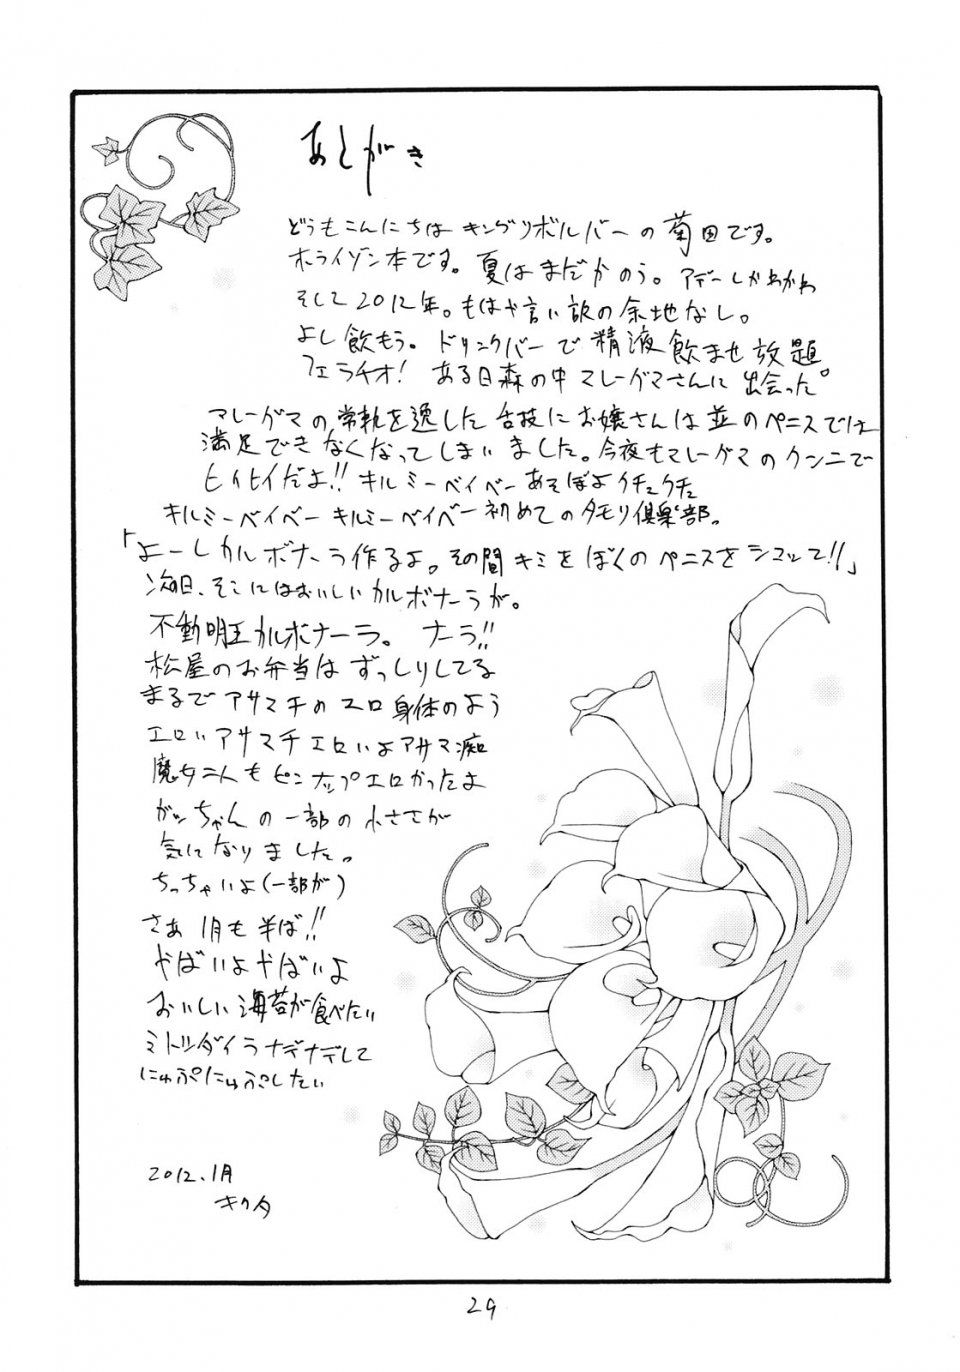 あとがき
どうもこんにちは キングリボルバーの 菊田です。
ホライゾン本です。夏はまだかのう。アデーレかわかわ
そして2012年。もはや言い訳の余地なし。
よし飲もう。ドリンクバーで精液飲ませ放題
フェラチオ! ある日森の中マレーグマさんに出会った。
マレーグマの常軌を逸した舌技にお嬢さんは並のペニスでは
満足できなくなってしまいました。今夜もマレーグマのクンニで
ヒイヒイだよ!! キルミーベイベーあそぼよクチュクチュ
キルミーベイベーキルミーベイベー初めてのタモリ倶楽部。
「よーしカルボナーラ作るよ。その間キミをぼくのペニスをシコッて!!」
次の日、そこにはおいしいカルボナーラが。
不動明王カルボナーラ。 ナーラ!!
松屋のお弁当はずっしりしてる
まるでアサマチのエロ身体のよう
エロいアサマチエロいよアサマ痴
魔女二人もピンナップエロかったよ
ガッちゃんの一部の小ささが
気になりました。
ちっちゃいよ(一部が)
さあ 1月も半ば!!
やばいよやばいよ
おいしい海苔が食べたい
ミトツダイラナデナデして
にゅぷにゅぷしたい
2012.1月
キクタ
29